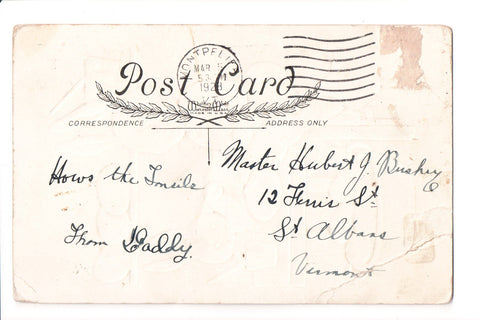 MONTPELIER
MAR
1923
Post Card
CORRESPONDENCE
ADDRESS ONLY
Hows the Tonsile
From Daddy.
Master Hubert J. Bushey
12 Ferris St
St Albans
Vermont